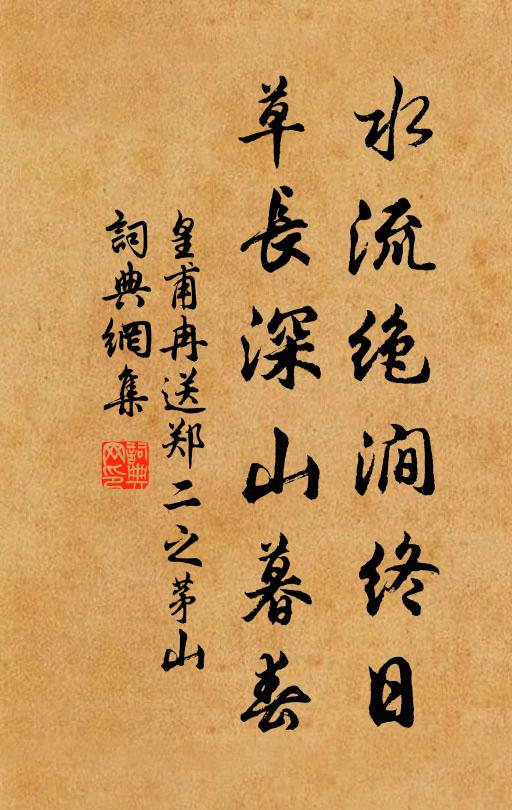 水流绝涧终日
草長深山暮春
皇甫冉送郑二之茅山
詞典網集
詞典
网印